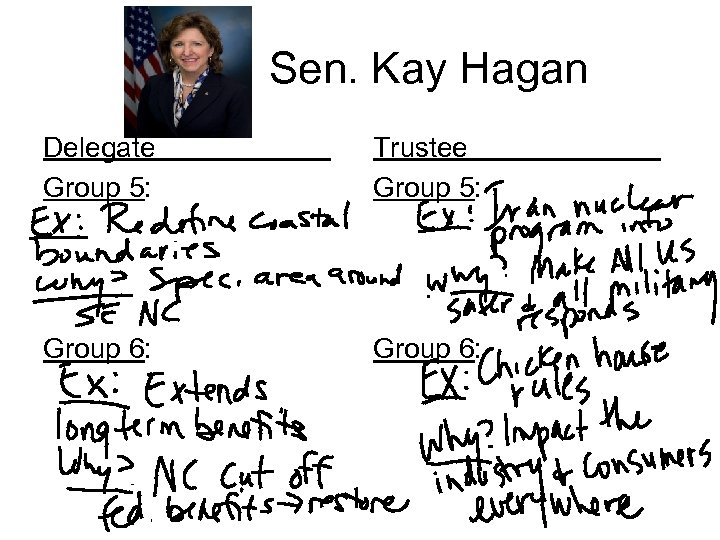 Sen. Kay Hagan
Delegate
Group 5:
Ex: Redefine coastal
boundaries
Why? Spec. area around
SE NC
Group 6:
Ex: Extends
long term benefits
Why? NC cut off
fed. benefits → restore
Trustee
Group 5:
Ex: Iran nuclear
program into
Why? Make All US
safer & all military
responds
Group 6:
Ex: Chicken house
rules
Why? Impact the
industry & consumers
everywhere